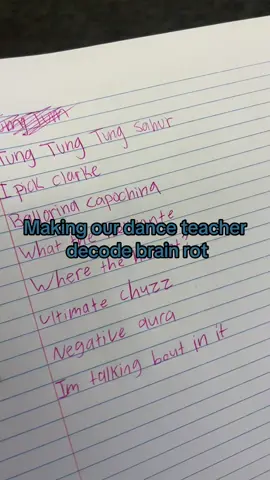 Tung Tung Tung sahur
I pick clarke
Ballarina capochina
Making our dance teacher
decode brain rot
What the
Where the
ultimate chuzz
Negative aura
Im talking bout in it